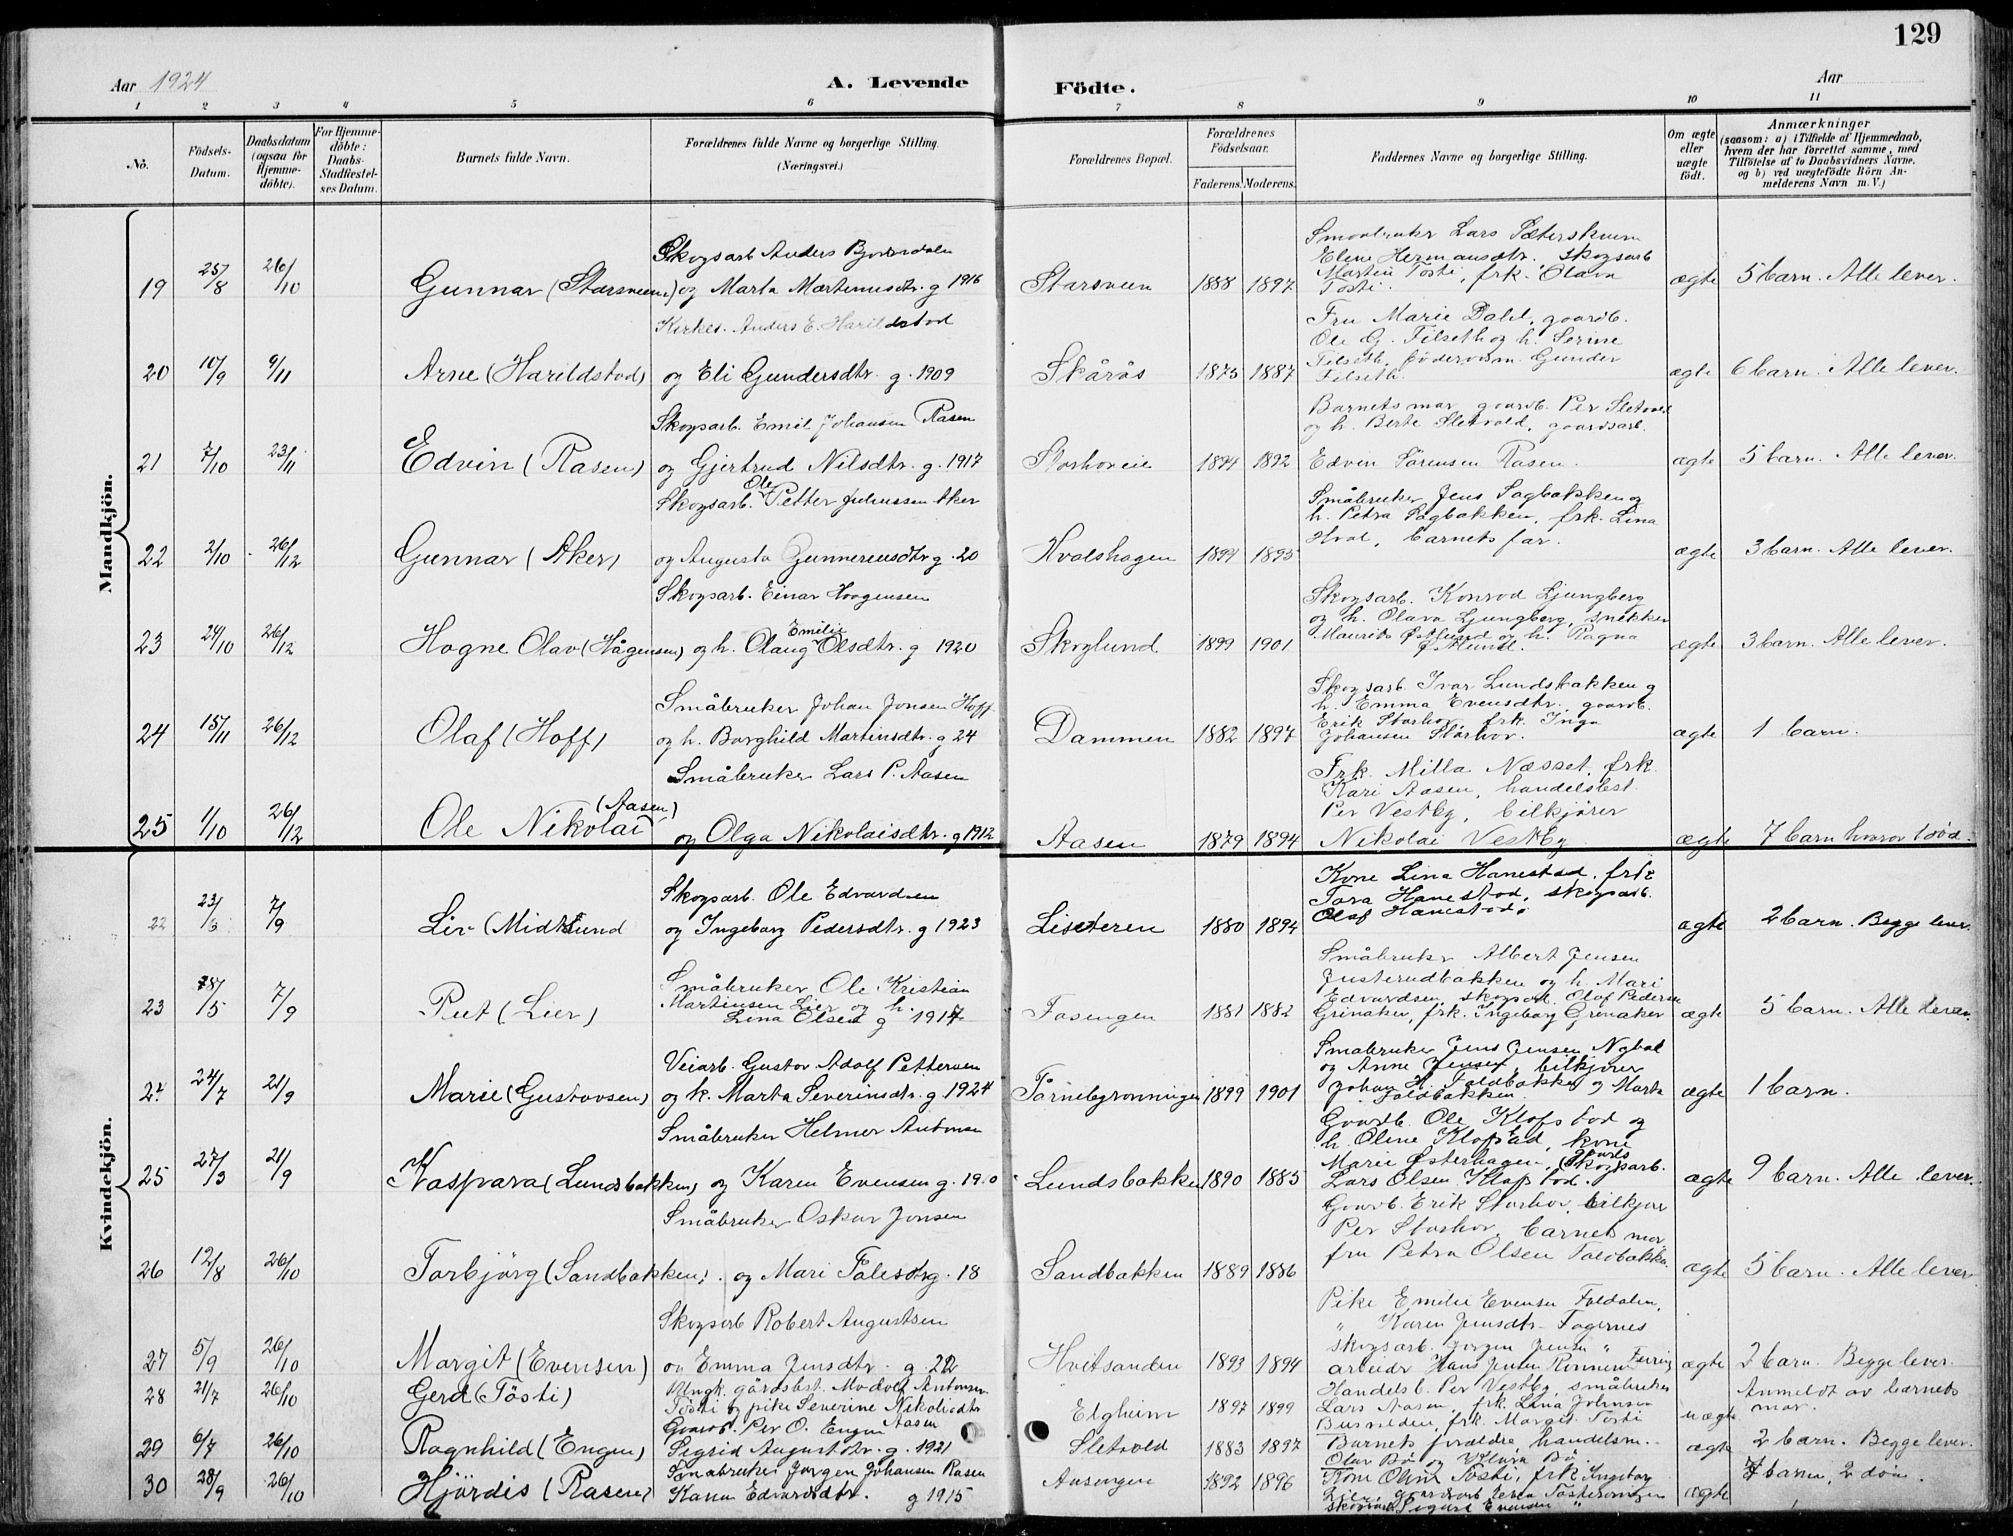 129
Aar 1924
A. Levende
Födte.
Aar
1 2 3 4 5 6 7 8 9 10 11
No.
Födsels-Datum.
Daabsdatum (ogsaa for Hjemme-döbte).
For Hjemme-döbte: Daabs-Stadfæstel-ses Datum.
Barnets fulde Navn.
Forældrenes fulde Navne og borgerlige Stilling. (Næringsvei.)
Forældrenes Bopæl.
Forældrenes Födselsaar.
Faderens. Moderens.
Faddernes Navne og borgerlige Stilling.
Om ægte eller uægte födt.
Anmærkninger
(saasom: a) i Tilfælde af Hjemmedaab, hvem der har forrettet samme, med Tilföielse af to Daabsvidners Navne, og b) ved uægtefödte Börn Anmelderens Navn m. V.)
Mandkjön.
19 25/8 26/10 Gunnar (Storsveen) Skogsarb Anders Bjorerdalen og Marta Martinusdtr. g 1916 Storsveen 1888 1897 Smaabruker Lars Sæterskveen Elene Hermansdtr. skogsarb Martin Tosti, frk. Olava Tosti. ægte 5 barn. Alle lever.
20 10/9 9/11 Arne (Harildstad) Kirkes. Anders E. Harildstad og Eli Gundersdtr. g. 1909 Skårås 1875 1887 Fru Marie Dahl, gaardb. Ole G. Filseth og h. Serine Filseth, föderaadsm. Gunder Filseth. ægte 6 barn. Alle lever.
21 7/10 23/11 Edvin (Rasen) Skogsarb. Emil Johansen Rasen og Gjertrud Nilsdtr. g. 1917 Storhoveie 1894 1892 Barnets mor, gaardb. Per Sletvold og h. Berte Sletvold, gaardsarb. Edvin Sörensen Rasen. ægte 5 barn. Alle lever.
22 2/10 26/12 Gunnar (Aker) Skogsarb. Ole Petter Juliussen Aker og Augusta Gunnerensdtr g. 20 Hvalshagen 1894 1895 Småbruker Jens Sagbakken og h. Petra Sagbakken, frk. Lina Hval, barnets far. ægte 3 barn. Alle lever.
23 24/10 26/12 Hogne Olav (Hågensen) Skogsarb. Einar Haagensen og h. Olaug Emilie Olsdtr. g 1920 Skoglund 1899 1901 Skogsarb. Konrad Ljungberg og h. Olava Ljungberg, snekker Maurits Østlund og h. Ragna Østlund. ægte 3 barn. Alle lever.
24 15/11 26/12 Olaf (Hoff) Småbruker Johan Jonsen Hoff og h. Borghild Martinsdtr. g 24 Dammen 1882 1897 Skogsarb. Ivar Lundsbakken og h. Emma Evensdtr. gaardb. Erik Storhov, frk. Inga Johansen Storhov. ægte 1 barn.
25 1/10 26/12 Ole Nikolai (Aasen) Småbruker Lars P. Aasen og Olga Nikolaisdtr. g 1912 Aasen 1879 1894 Frk. Milla Næsset, frk. Kari Aasen, handelsbest. Per Vestby, bilkjører Nikolai Vestby ægte 7 barn hvorav 1 död.
Kvindekjön.
22 23/3 7/9 Liv (Midtlund Skogsarb. Ole Edvardsen og Ingeborg Pedersdtr. g 1923 Liseteren 1880 1894 Kone Lina Hanestad, frk Tora Hanestad, skogsarb. Olaf Hanestad. ægte 2 barn. Begge lever.
23 18/5 7/9 Rut (Lier) Småbruker Ole Kristian Martinsen Lier og h. Lina Olsen g 1917 Fosengen 1881 1882 Småbruker Albert Jensen Justerudbakken og h. Mari Edvardsen, skogsarb. Olaf Pedersen Grinaker, frk. Ingeborg Grinaker ægte 5 barn. Alle lever.
24 24/7 21/9 Marie (Gustavsen) Veiarb. Gustav Adolf Pettersen og k. Marta Severinsdtr. g 1924 Tårnebygronningen 1899 1901 Småbruker Jens Jensen og Anne Jensen, bilkjører Johan H. Foldbakken og Marta Foldbakken. ægte 1 barn.
25 27/3 21/9 Kaspara (Lundsbakken) Småbruker Helmer Antonsen og Karen Evensen g. 19.0 Lundsbakken 1890 1885 Gaardb. Ole Klofstad og h. Oline Klofstad, kone Marie Østerhagen, skogsarb. Lars Olsen Klofstad. ægte 9 barn. Alle lever.
26 12/8 26/10 Torbjörg (Sandbakken). Småbruker Oskar Jonsen og Mari Pålesdtr g. 18 Sandbakken 1889 1886 Gaardb. Erik Storhov, bilkjører Per Storhov, barnets mor, fru Petra Olsen ægte 5 barn. Alle lever.
27 5/9 26/10 Margit (Evensen) Skogsarb Robert Augustsen og Emma Jensdtr. g. 22 Hvitsanden 1893 1894 Pike Emilie Evensen Foldalen, " Karen Jensdtr. Fagernes skogsarb. Jörgen Jensen " arbeider Hans Jensen ægte 2 barn. Begge lever.
28 21/7 26/10 Gerd (Tösti) Ungk. gårdsbest. Modolf Antonsen Tösti og pike Severine Nikolisdtr Aasen Elgheim 1897 1899 Handelsb. Per Vestby, småbruker Lars Aasen, frk. Lina Johnsen frk. Margit Tosti uægte Anmeldt av barnets mor.
29 6/7 26/10 Ragnhild (Engen) Gaardb. Per O. Engen Sigrid Augustdtr. g. 1921 Sletvold 1883 1897 Barnets forældre, handelsm. Olav Bø og Klara Bø. ægte 2 barn. Begge lever.
30 28/9 26/10 Hjördis (Rasen) Småbruker Jørgen Johansen Rasen Karen Edvardsdtr. g 1915 Aasengen 1892 1896 Kone Oline Tosti, frk Ingeborg Lien, ægte 7 barn, 2 döde.